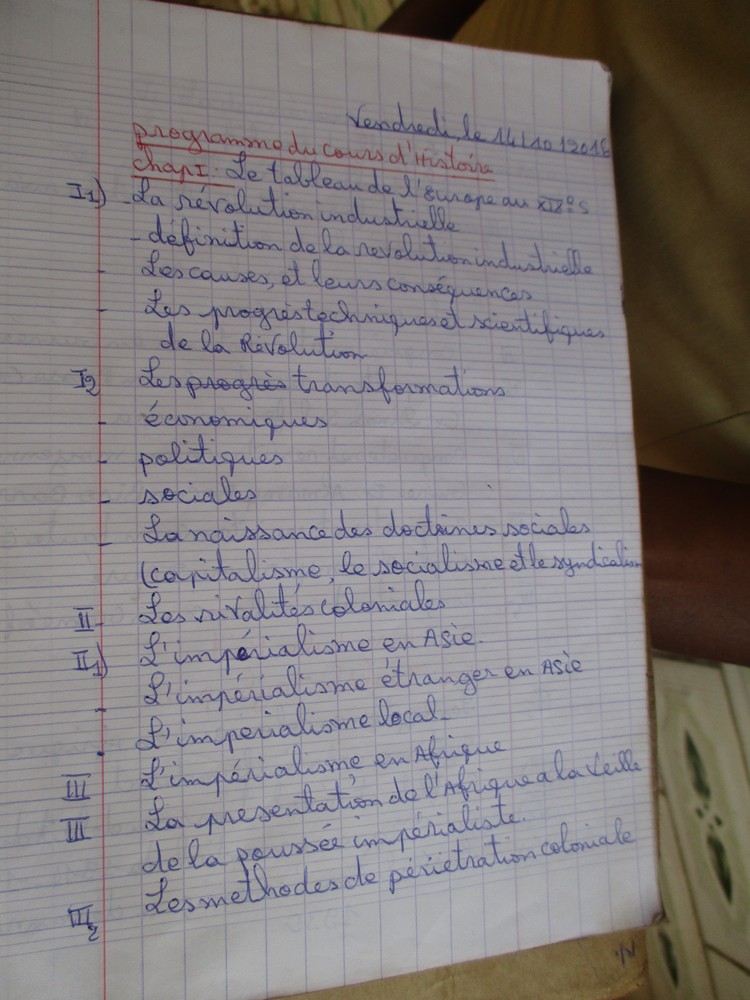 Vendredi, le 14/10/2016
programme du cours d'Histoire
Chap I: Le tableau de l'Europe au XIXe S
I1) - La révolution industrielle
- définition de la revolution industrielle
- Les causes, et leurs conséquences
- Les progrès techniques et scientifiques
de la Révolution
I2 Les progrès transformations
- économiques
- politiques
- sociales
- La naissance des doctrines sociales
(capitalisme, le socialisme et le syndicalism
II - Les rivalités coloniales
II1) L'impérialisme en Asie.
- L'impérialisme étranger en Asie
- L'imperialisme local -
III L'impérialisme en Afrique
III La presentation de l'Afrique a la veille
de la poussée impérialiste.
III2 Les methodes de pénétration coloniale